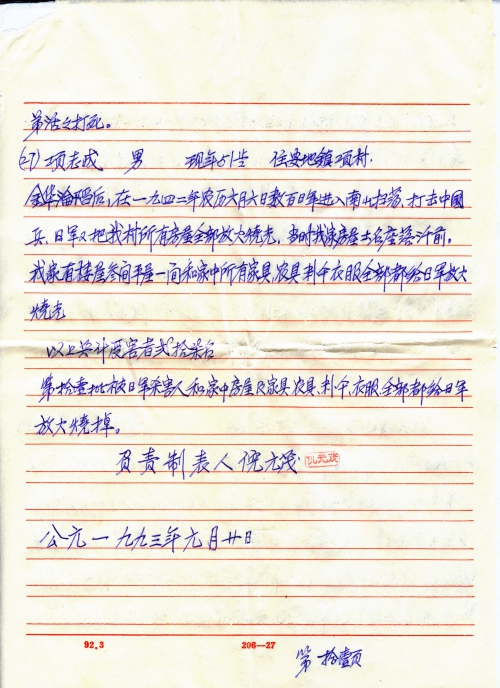 弟活之打死。
(27) 项志成 男 现年51岁 住安地镇项村.
金华沦陷后,在一九四二年农历六月六日数百日军进入南山扫荡.打击中國
兵.日軍又把我村所有房屋全部放火烧光,当时我家房屋土名座落汁前.
我家直楼屋叁间平屋一间和家中所有家具.农具.衣服全部都给日軍放火
燒光
以上共计受害者弍拾柒名
第拾壹批被日軍杀害人和家中房屋及家具.农具.衣服.全部都给日軍
放火燒掉。
負責制表人倪元茂
公元一九九三年元月廿日
92.3 206—27
第拾壹页